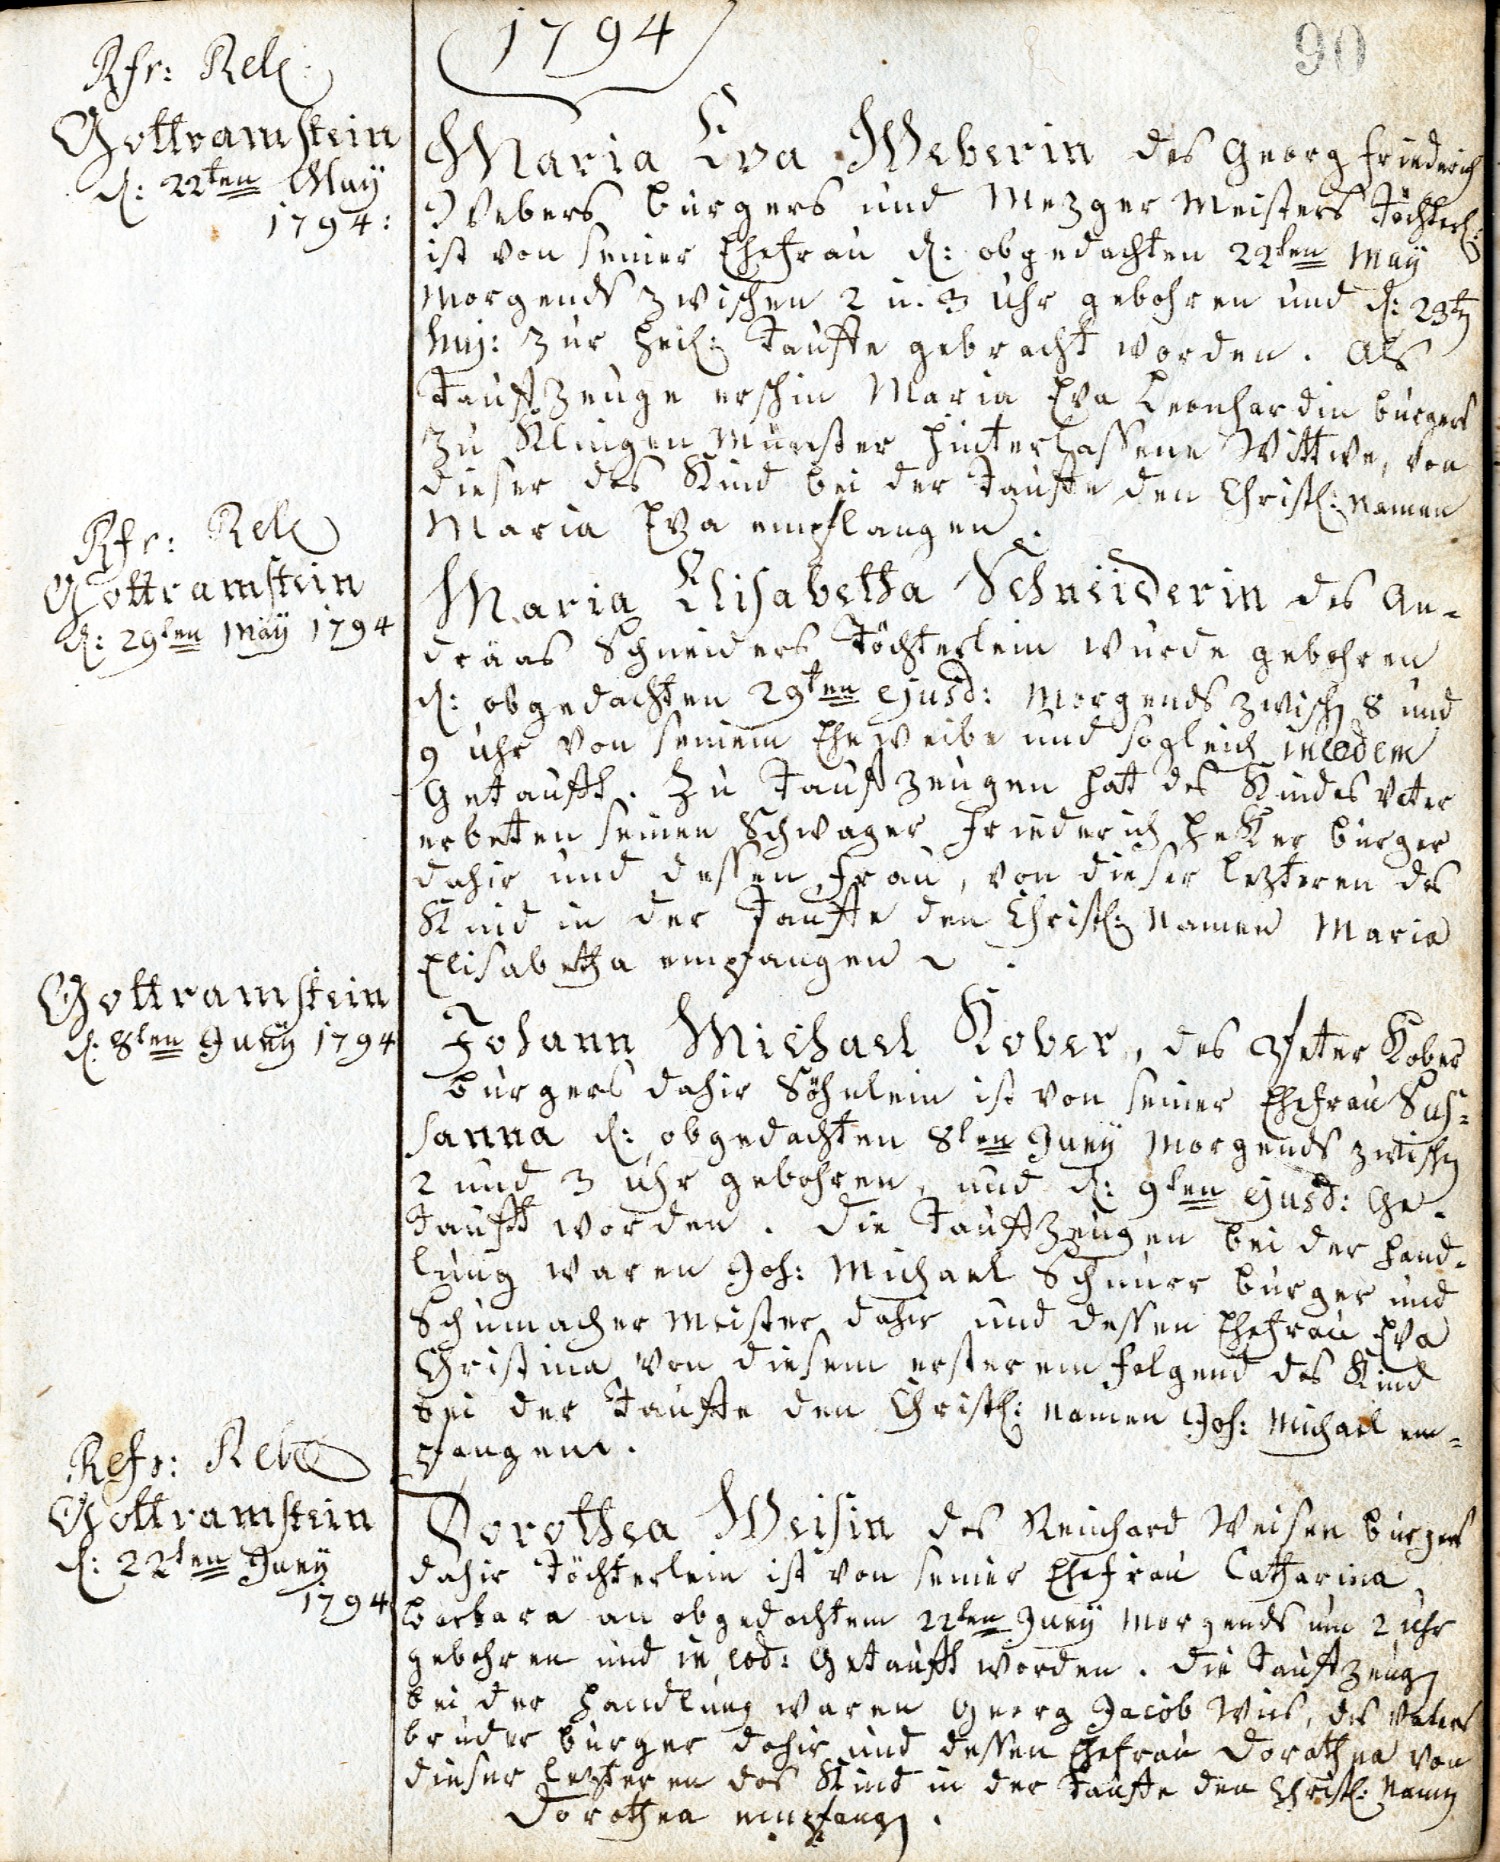 1794
90
Rfr: Rel:
Gottramstein
d: 22ten May
1794:
Maria Eva Weberin des Georg Friederich
Webers Burgers und Mezger Meisters Töchterl:
ist von seiner Ehefrau d: obgedachten 22ten May
Morgends zwischen 2 u. 3 Uhr gebohren und d: 23tn
huj: zur heil: Tauffe gebracht worden. Als
Tauffzeuge erschin Maria Eva Leonhardin burgers
zu Klingen Münster hinterlassene Wittwe, von
dieser das Kind bei der Tauffe den Christl: Namen
Maria Eva empfangen.
Rfr: Rel:
Gottramstein
d: 29ten May 1794
Maria Elisabetha Schneiderin des An-
dräas Schneiders Töchterlein wurde gebohren
d: obgedachten 29ten ejusd: Morgends zwisch 8 und
9 Uhr von seinem Eheweibe und sogleich in eodem
Getaufft. Zu Taufzeugen hatt des Kindes Vater
erbetten seinen Schwager Friederich Heker burger
dahir und dessen Frau, von dieser lezteren das
Kind in der Tauffe den Christl: Namen Maria
Elisabetha empfangen.
Gottramstein
d: 8ten Juny 1794
Johann Michael Kober, des Peter Kobers
burgers dahir Söhnlein ist von seiner Ehefrau Sus-
sanna d: obgedachten 8ten Juny Morgends zwischn
2 und 3 Uhr gebohren, und d: 9ten ejusd: Ge-
taufft worden. Die Tauffzeugen bei der Hand-
lung waren Joh: Michael Schnurr burger und
Schumacher Meister dahir und dessen Ehefrau Eva
Christina von diesem ersterem folgend das Kind
bei der Tauffe den Christl: Namen Joh: Michael em-
pfangen.
Refr: Rel:
Gottramstein
d: 22ten Juny
1794
Dorothea Weisin des Reinhard Weisen burgers
dahir Töchterlein ist von seiner Ehefrau Catharina
Barbara an obgedachtem 22ten Juny Morgends um 2 Uhr
gebohren und in eod: Getaufft worden. Die Tauffzeugn
bei der Handlung waren Georg Jacob Weis, des Vaters
bruder burger dahir und dessen Ehefrau Dorothea von
dieser lezteren das Kind in der Tauffe den Christl: Namn
Dorothea empfangn.